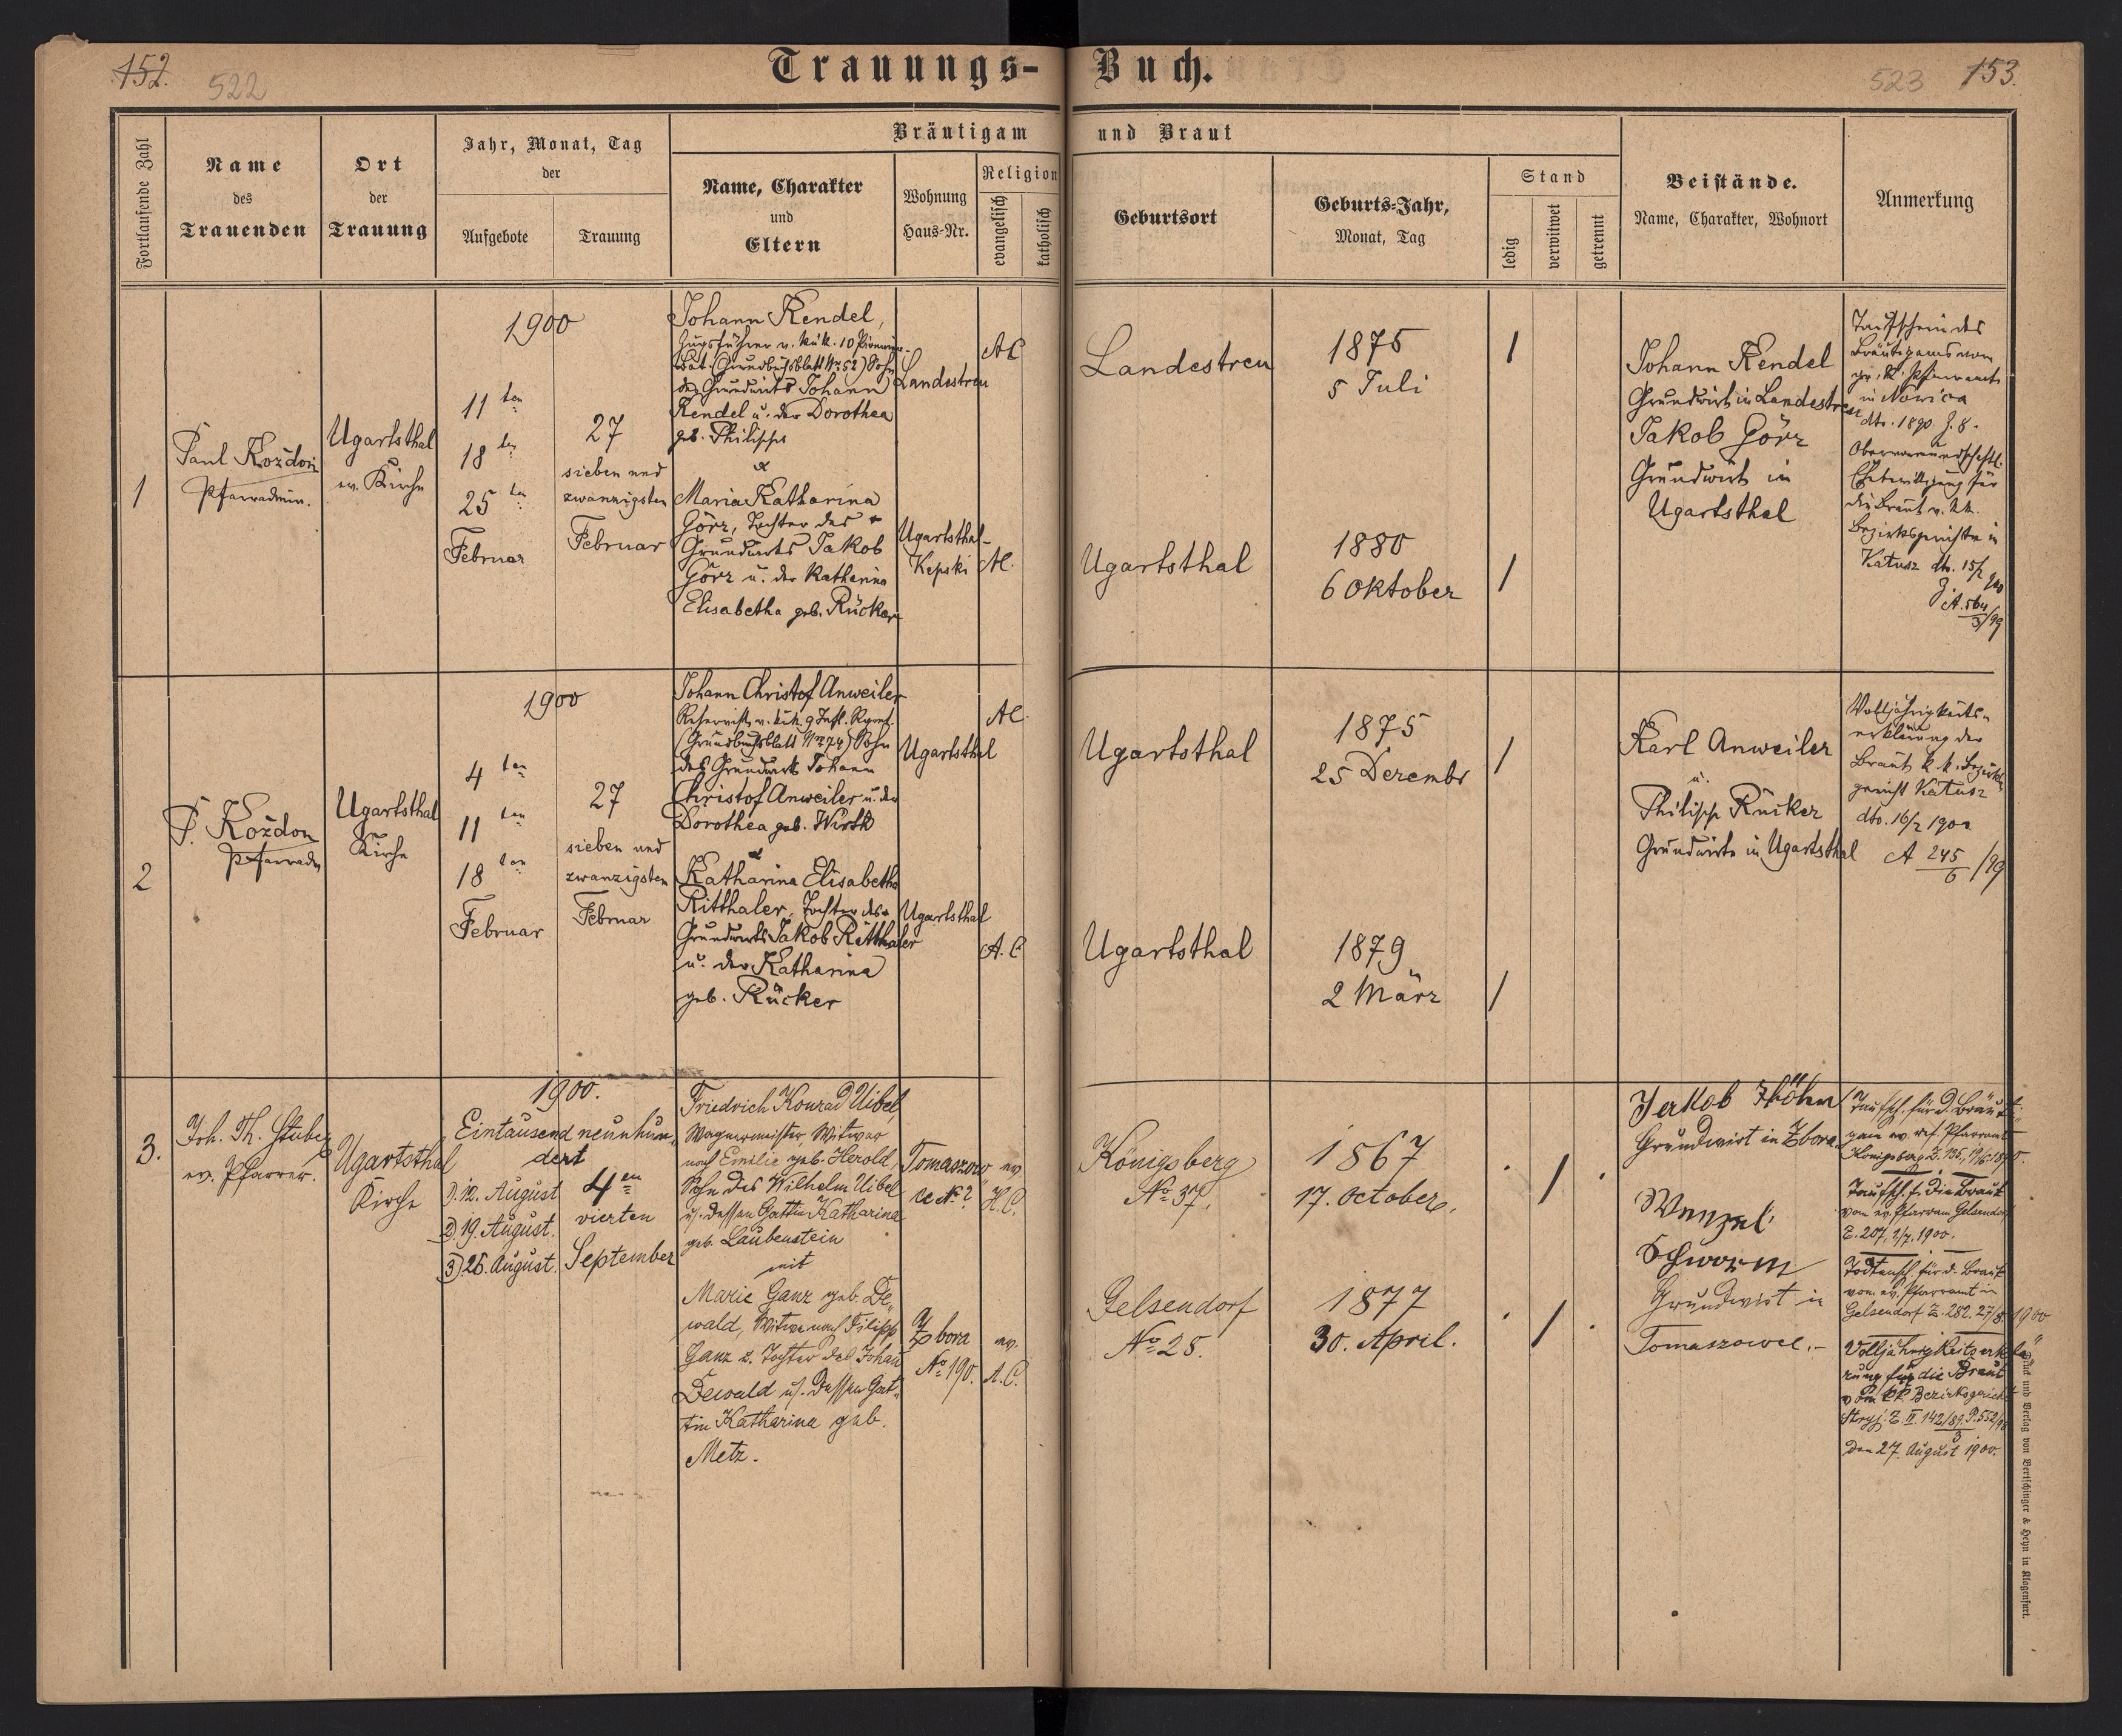 152.
522
Trauungs-
Buch.
523
153.
Fortlaufende Zahl
Name
des
Trauenden
Ort
der
Trauung
Jahr, Monat, Tag
der
Aufgebote
Trauung
Bräutigam
und Braut
Name, Charakter
und
Eltern
Wohnung
Haus-Nr.
Religion
evangelisch
katholisch
Geburtsort
Geburts-Jahr,
Monat, Tag
Stand
ledig
verwitwet
getrennt
Beistände.
Name, Charakter, Wohnort
Anmerkung
1
Paul Koždoń
Pfarradmin.
Ugartsthal
ev. Kirche
1900
11 ten
18 ten
25 ten
Februar
27
sieben und
zwanzigsten
Februar
Johann Rendel,
Zugsführer v. k.u.k. 10 Pionnier-
Bat. (Grundbuchsblatt Nr 52) Sohn
des Grundwirts Johann
Rendel u. der Dorothea
geb. Philipps
&
Maria Katharina
Görz, Tochter des
Grundwirts Jakob
Görz u. der Katharina
Elisabetha geb. Rücker
Landestreu
Ugartsthal-
Kepski
AC
AC.
Landestreu
Ugartsthal
1875
5 Juli
1880
6 Oktober
/
/
Johann Rendel
Grundwirt in Landestreu
Jakob Görz
Grundwirt in
Ugartsthal
Taufschein des
Bräutigams vom
gr. k. Pfarramte
in Nowica
dto. 1890. Z. 8.
Obervormundschaftl.
Ehebewilligung für
die Braut v. kk.
Bezirksgerichte in
Katusz dto. 15/2 900
Z. A. 564/3/99
2
P. Koždon
Pfarradm
Ugartsthal
Kirche
1900
4 ten
11 ten
18 ten
Februar
27
sieben und
zwanzigsten
Februar
Johann Christof Anweiler
Reservist v. k.u.k. 9 Inft. Rgmt.
(Grundbuchsblatt Nr 74) Sohn
des Grundwirts Johann
Christof Anweiler u. der
Dorothea geb. Wirth
&
Katharina Elisabetha
Ritthaler, Tochter des
Grundwirts Jakob Ritthaler
u. der Katharina
geb. Rücker
Ugartsthal
Ugartsthal
AC.
A.C
Ugartsthal
Ugartsthal
1875
25 Dezembr
1879
2 März
/
/
Karl Anweiler
u.
Philipp Rücker
Grundwirte in Ugartsthal
Volljährigkeits-
erklärung der
Braut k. k. Bezirks
gericht Katusz
dto. 16/2 1900
A 245/6/99
3.
Joh. Th. Stuber
ev. Pfarrer.
Ugartsthal
Kirche
1900.
Eintausend neunhun-
dert
1). 12. August
2) 19. August.
3) 26. August.
4 en
vierten
September
Friedrich Konrad Uibel,
Wagnermeister, Witwer
nach Emilie geb. Herold,
Sohn des Wilhelm Uibel
u. dessen Gattin Katharina
geb. Laubenstein
mit
Marie Ganz geb. De-
wald, Witwe nach Filipp
Ganz u. Tochter des Johann
Dewald u. dessen Gat-
tin Katharina geb.
Metz.
Tomaszow
ce No ?
Zbora
No 190.
ev.
H.C.
ev.
A.C.
Königsberg
No 37.
Gelsendorf
No 25.
1867
17. October.
1877
30. April.
. / .
. / .
Jakob Höhn
Grundwirt in Zbora
Wenzel
Schworm
Grundwirt in
Tomaszowce.-
Taufsch. für d. Bräuti-
gam ev. ref. Pfarramt
Königsberg Z. 135, 19/6 1890.
Taufsch. f. die Braut
vom ev. Pfarram. Gelsendorf
Z. 207, 2/7. 1900.
Todtensch. für d. Braut
vom ev. Pfarramt in
Gelsendorf Z. 282. 27/8. 1900
Volljährigkeitserklä-
rung für die Braut
vom kk Bezirksgericht
Stryj. Z. II 142/89. P. 552/98
3
den 27. August 1900.
Druck und Verlag von Bertschinger & Heyn in Klagenfurt.